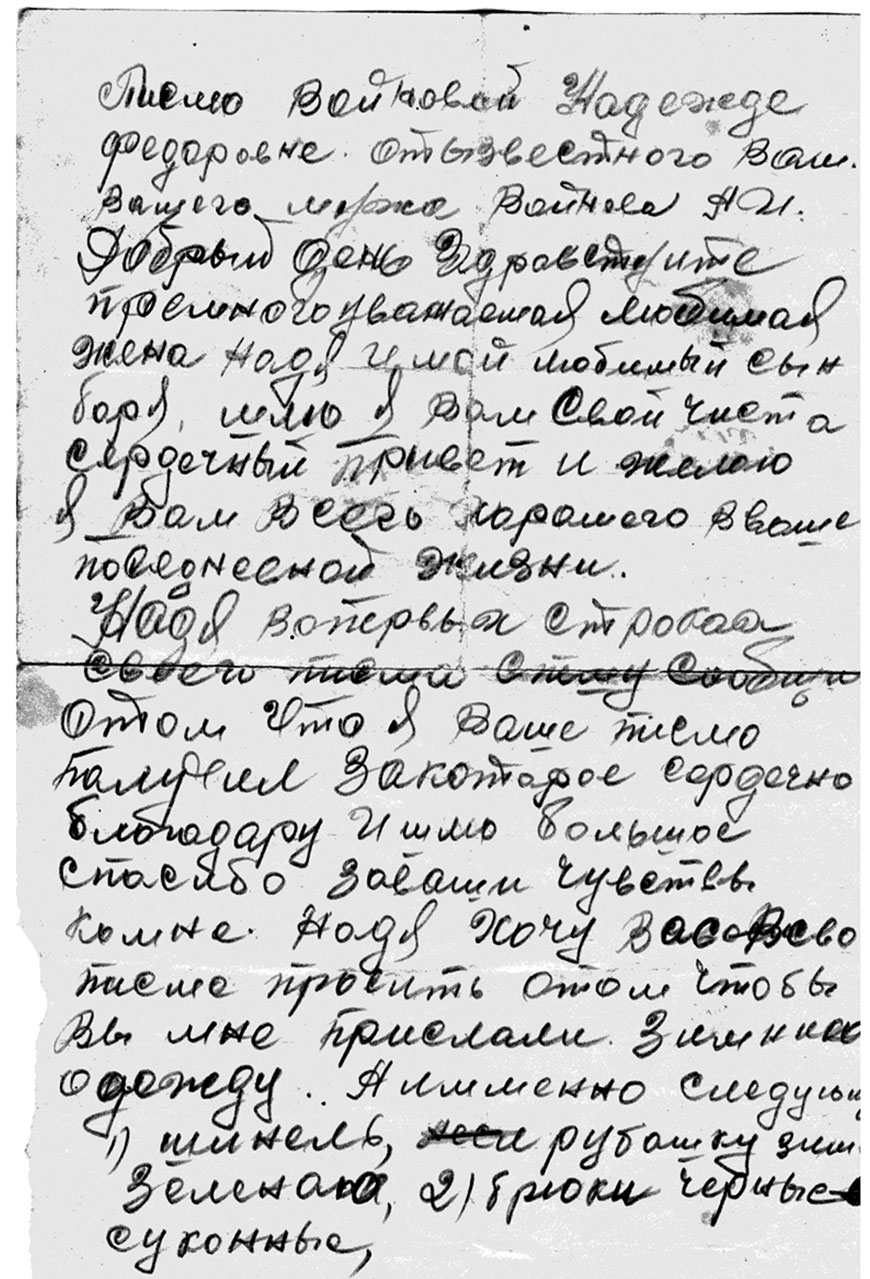 Писмо Войновой Надежде
Федаровне. отызвестного Вам.
Вашего мужа Войнова А И.
Добрый день Здравствуите
преэмногоуважаемая любимая
жена Надя И мой любимый сын
боря, шлю я Вам Свой чиста
сердечный привет и желаю
я Вам Всего харошего Вваше
поседнесной жизни.
Надя Вопервых строках
своего писма Стму Сообщи
Отом Что я Ваше писмо
Палучил Закоторое сердечно
благодару И шлю большое
спасибо Заваши Чувствы
Комне. Надя Хочу Вас Всво
писме просить отом чтобы
Вы мне прислали Зимнию
одежду.. А имменно следующ
1) шинель, рубашку зим
Зеленаю, 2) брюки черные
суконные,